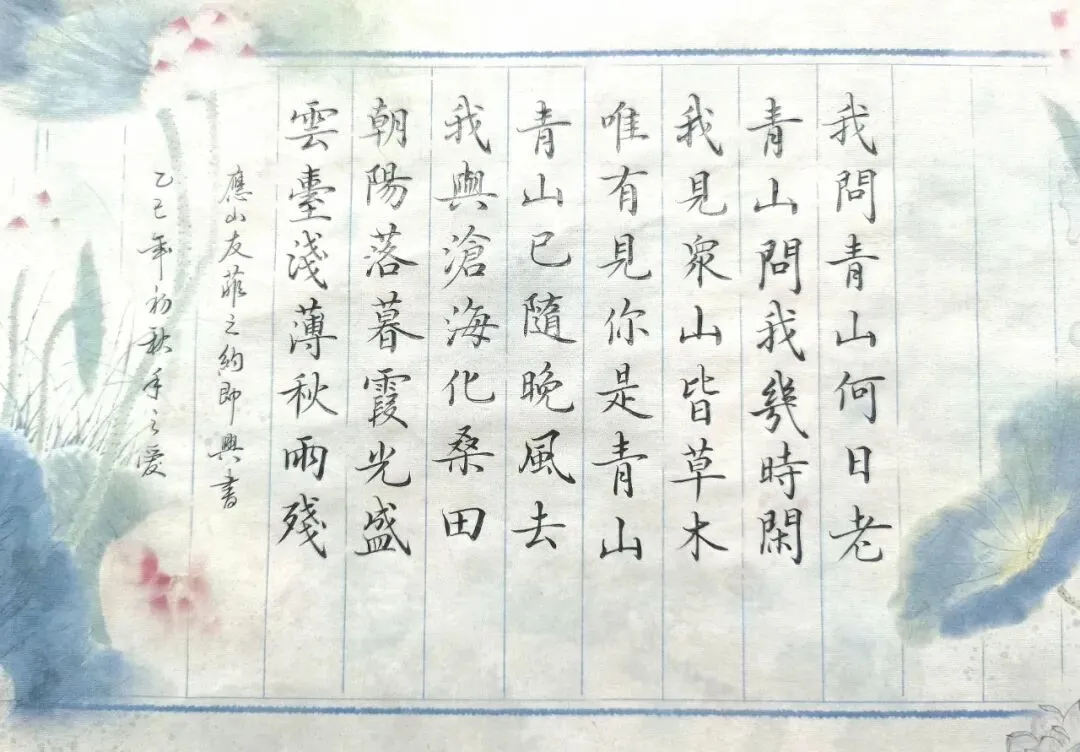 我問青山何日老
青山問我幾時閑
我見衆山皆草木
唯有見你是青山
青山已隨晚風去
我與滄海化桑田
朝陽落暮霞光盛
雲臺淺薄秋雨殘
應山友菲之約即興書
乙巳年初秋手之愛